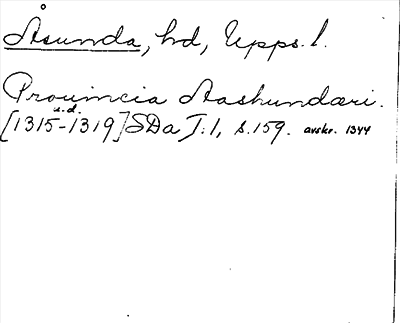 Åsunda, hd, Upps. l.
Prouincia Aashundæri.
s.d.
[1315-1319] SDa I:1, s.159. avskr. 1344